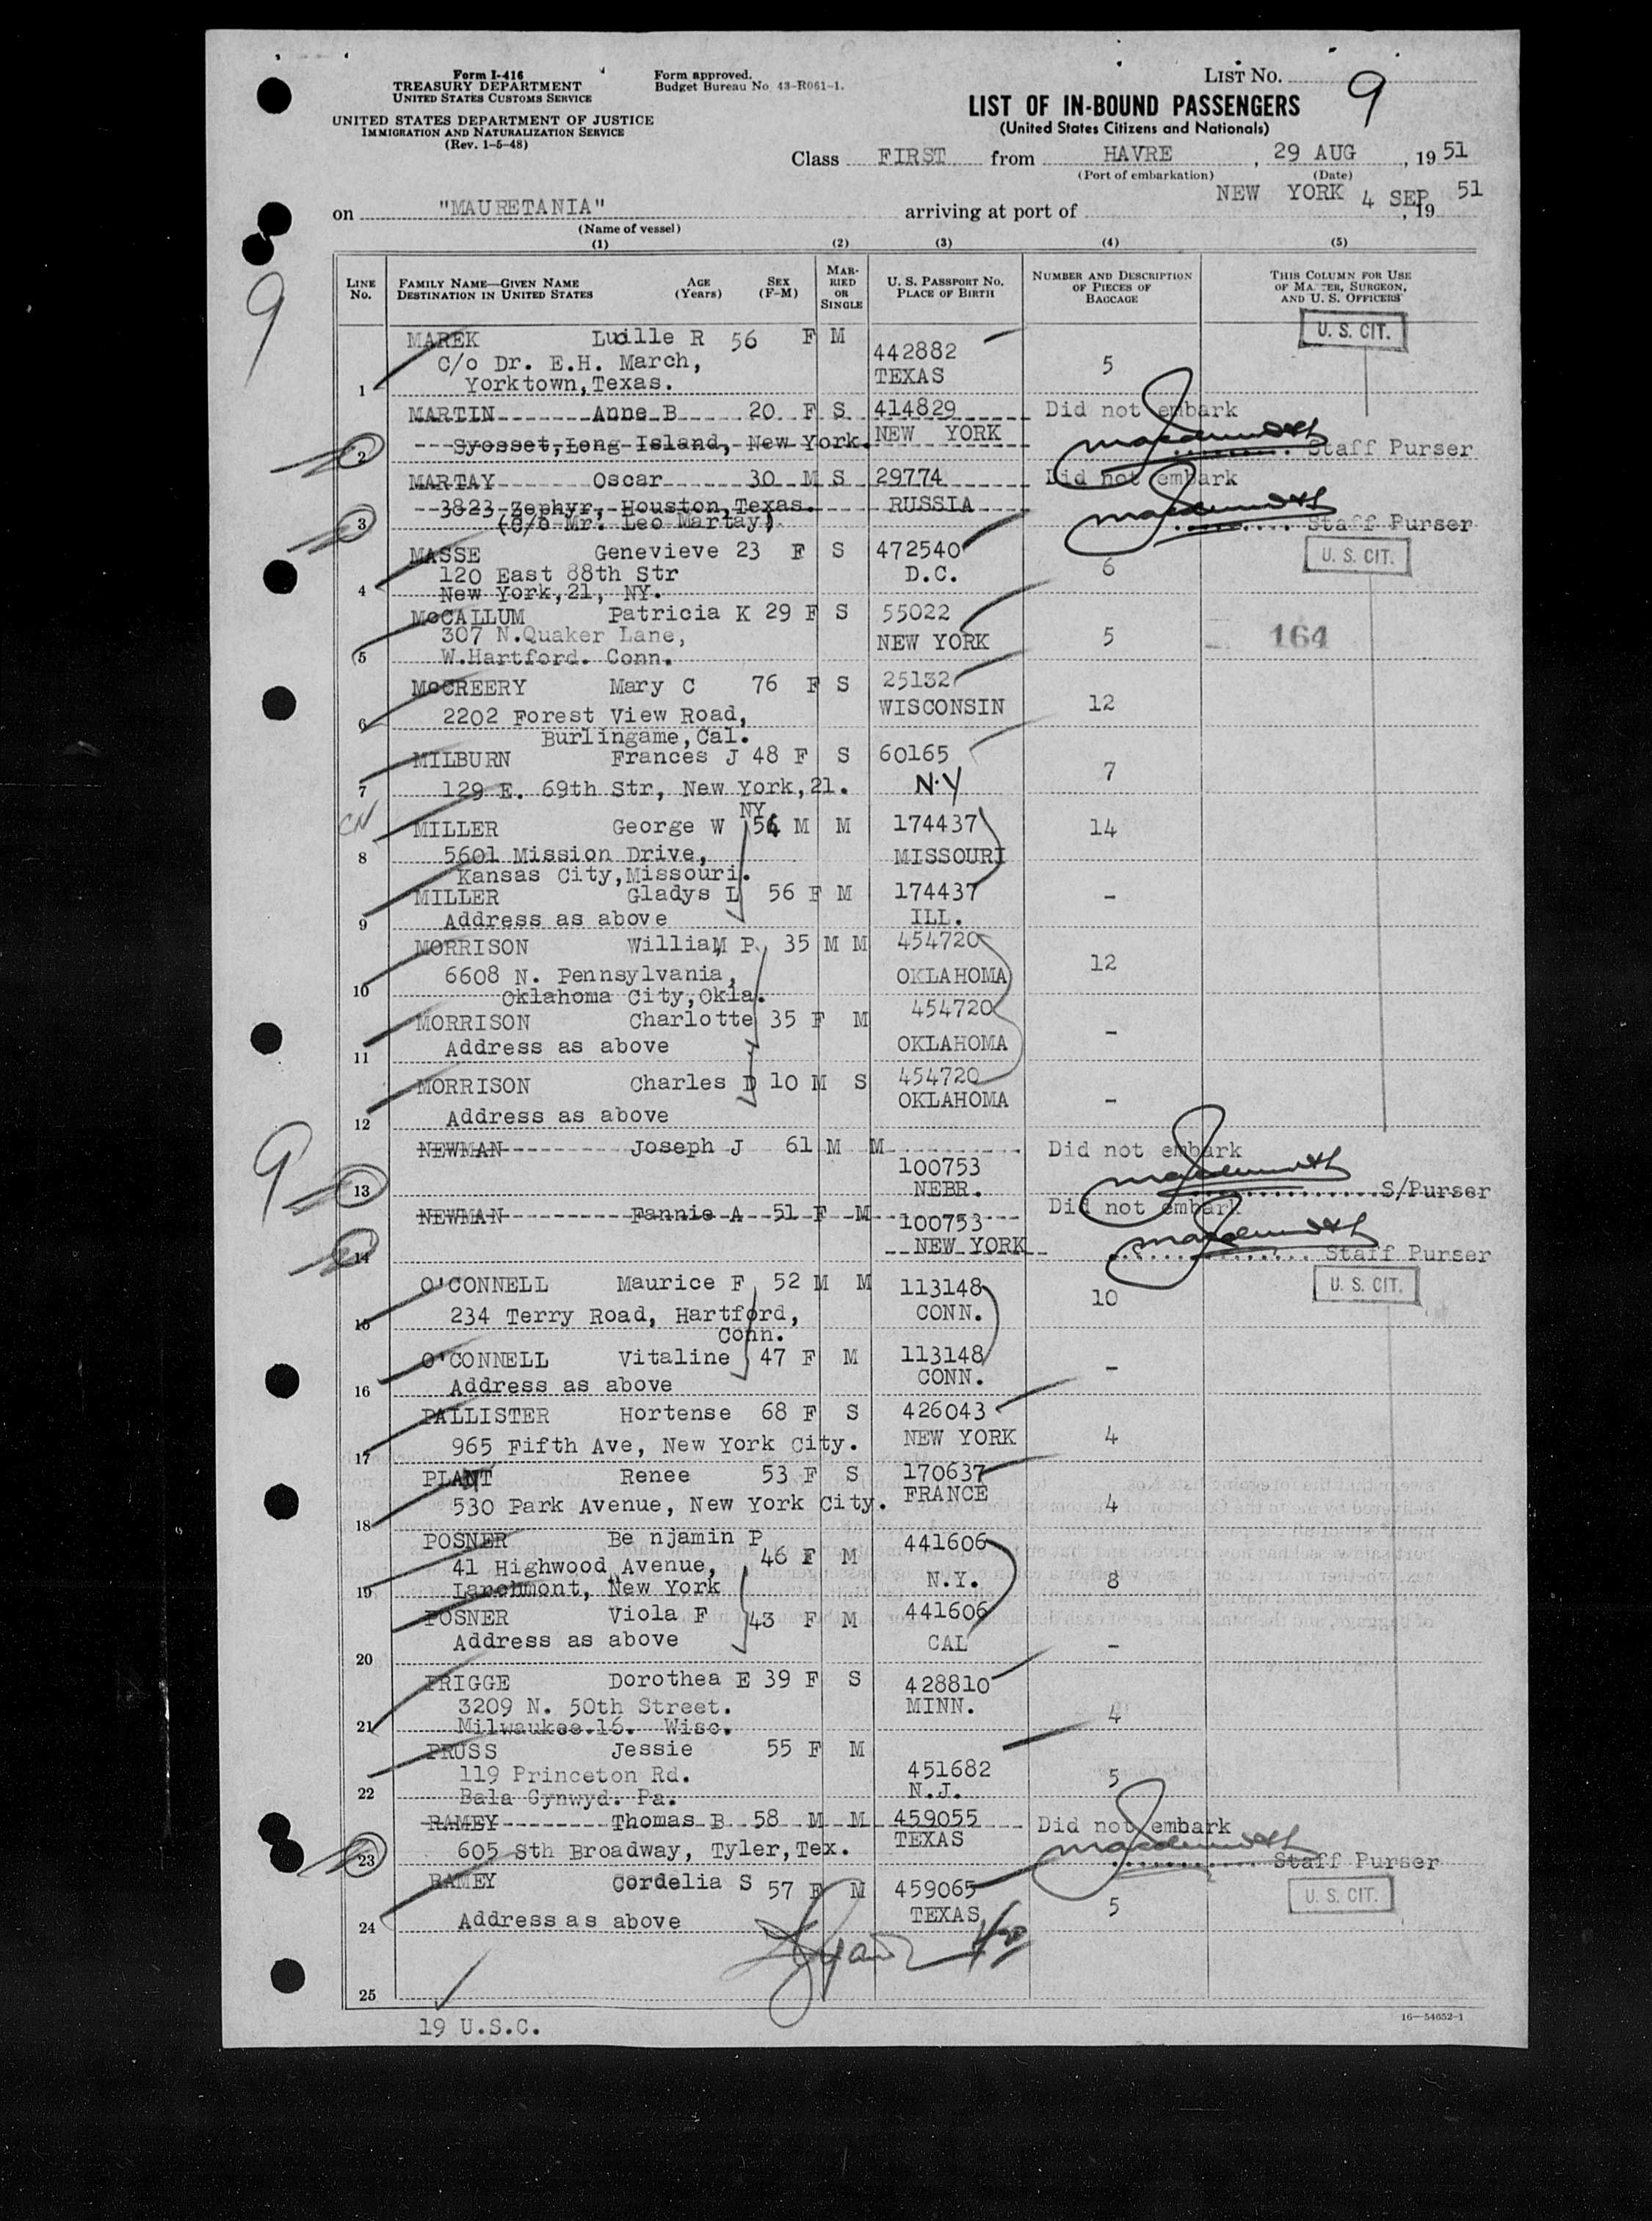 Form I-416
TREASURY DEPARTMENT
UNITED STATES CUSTOMS SERVICE
UNITED STATES DEPARTMENT OF JUSTICE
IMMIGRATION AND NATURALIZATION SERVICE
(Rev. 1-5-48)
Form approved.
Budget Bureau No. 43-R061-1.
LIST No. 9
LIST OF IN-BOUND PASSENGERS
(United States Citizens and Nationals)
Class FIRST from HAVRE, 29 AUG, 1951
(Port of embarkation) (Date)
on "MAURETANIA" arriving at port of NEW YORK 4 SEP, 19 51
(Name of vessel)
(1) (2) (3) (4) (5)
LINE No. FAMILY NAME—GIVEN NAME DESTINATION IN UNITED STATES AGE (Years) SEX (F-M) MARRIED OR SINGLE U. S. PASSPORT No. PLACE OF BIRTH NUMBER AND DESCRIPTION OF PIECES OF BAGGAGE THIS COLUMN FOR USE OF MASTER, SURGEON, AND U. S. OFFICERS
9
U. S. CIT.
MAREK Lucille R 56 F M 442882 5
C/o Dr. E.H. March, TEXAS
1 Yorktown, Texas.
MARTIN Anne B 20 F S 414829 Did not embark
Syosset, Long Island, New York. NEW YORK
2 Staff Purser
MARTAY Oscar 30 M S 29774 Did not embark
3823 Zephyr, Houston, Texas. RUSSIA
3 (C/o Mr. Leo Martay) Staff Purser
MASSE Genevieve 23 F S 472540 6 U. S. CIT.
120 East 88th Str D.C.
4 New York, 21, NY.
McCALLUM Patricia K 29 F S 55022
307 N.Quaker Lane, NEW YORK 5 164
5 W.Hartford. Conn.
McCREERY Mary C 76 F S 25132
6 2202 Forest View Road, WISCONSIN 12
Burlingame, Cal.
MILBURN Frances J 48 F S 60165 7
7 129 E. 69th Str, New York, 21. N.Y
NY
CN
MILLER George W 54 M M 174437 14
8 5601 Mission Drive, MISSOURI
Kansas City, Missouri.
MILLER Gladys L 56 F M 174437 -
9 Address as above ILL.
MORRISON William P. 35 M M 454720 12
6608 N. Pennsylvania, OKLAHOMA
10 Oklahoma City, Okla.
MORRISON Charlotte 35 F M 454720 -
11 Address as above OKLAHOMA
MORRISON Charles D 10 M S 454720 -
12 Address as above OKLAHOMA
NEWMAN Joseph J 61 M M Did not embark
9 100753
13 NEBR. S/Purser
NEWMAN Fannie A 51 F M 100753 Did not embark
14 NEW YORK Staff Purser
O'CONNELL Maurice F 52 M M 113148 10 U. S. CIT.
15 234 Terry Road, Hartford, CONN.
Conn.
O'CONNELL Vitaline 47 F M 113148 -
16 Address as above CONN.
PALLISTER Hortense 68 F S 426043 4
17 965 Fifth Ave, New York City. NEW YORK
PLANT Renee 53 F S 170637 4
18 530 Park Avenue, New York City. FRANCE
POSNER Be njamin P 441606
41 Highwood Avenue, 46 F M
19 Larchmont, New York N.Y. 8
POSNER Viola F 43 F M 441606 -
20 Address as above CAL
PRIGGE Dorothea E 39 F S 428810 4
3209 N. 50th Street. MINN.
21 Milwaukee.16. Wisc.
PRUSS Jessie 55 F M
119 Princeton Rd. 451682 5
22 Bala Cynwyd. Pa. N.J.
RAMEY Thomas B 58 M M 459055 Did not embark
605 Sth Broadway, Tyler, Tex. TEXAS
23 Staff Purser
RAMEY Cordelia S 57 F M 459065 5 U. S. CIT.
24 Address as above TEXAS
25
19 U.S.C.
16—54652-1